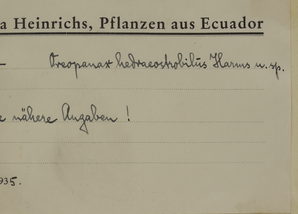 a Heinrichs, Pflanzen aus Ecuador
– Oreopanax hedraeostrobilus Harms n. sp.
e nähere Angaben !
935.